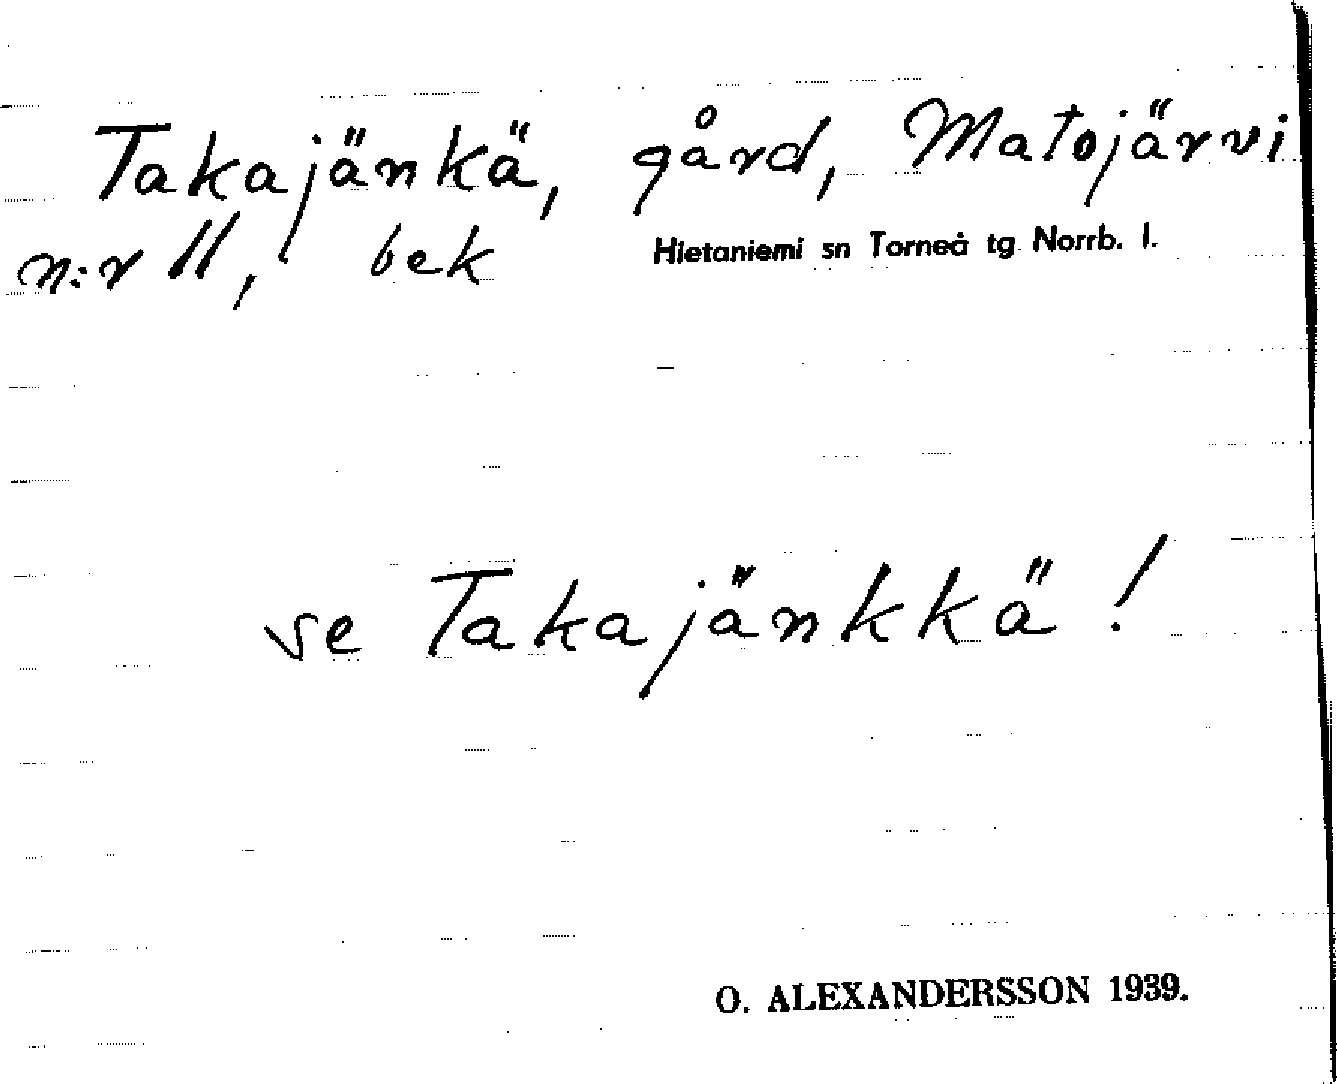 Takajänkä, gård, Matojärvi
n:r 11, bek
Hietaniemi sn Torneå tg Norrb. l.
se Takajänkkä!
O. ALEXANDERSSON 1939.